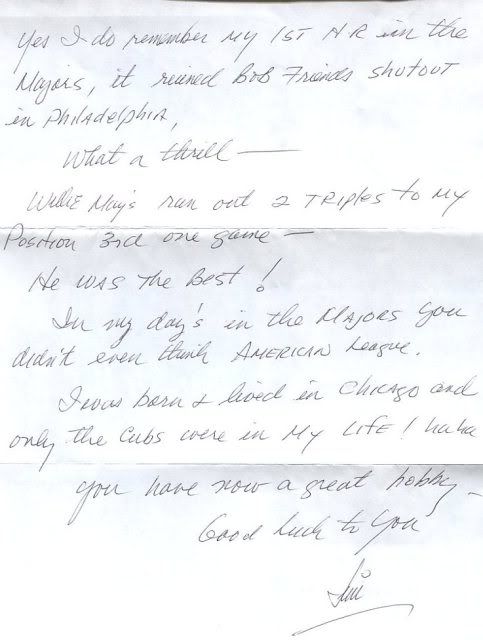 Yes I do remember my 1ST HR in the
Majors, it ruined Bob Friends shutout
in Philadelphia,
What a thrill —
Willie May's ran out 2 Triples to my
Position 3rd one game —
He was the Best!
In my day's in the Majors you
didn't even think American League.
I was born & lived in Chicago and
only the Cubs were in my LIFE! haha
you have now a great hobby —
Good luck to you